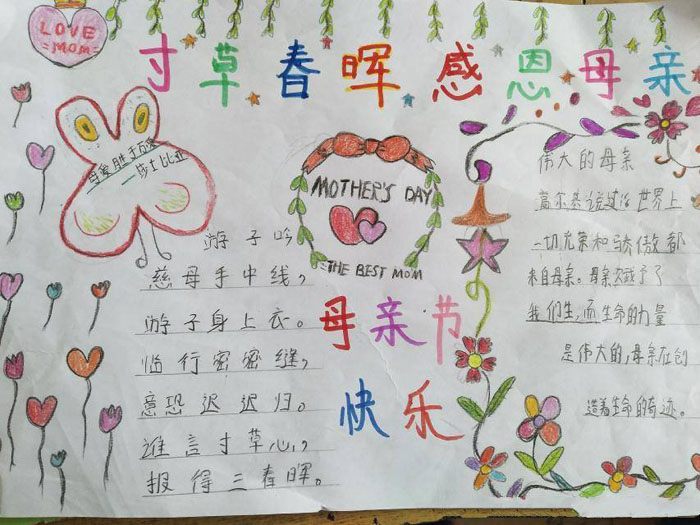 LOVE
MOM
寸草春晖感恩母亲
母爱胜于万爱
—莎士比亚
MOTHER'S DAY
THE BEST MOM
游子吟
慈母手中线，
游子身上衣。
临行密密缝，
意恐迟迟归。
谁言寸草心，
报得三春晖。
母亲节
快乐
伟大的母亲
高尔基说过：世界上
一切光荣和骄傲都
来自母亲。母亲给了
我们生，而生命的力量
是伟大的，母亲在创
造着生命的奇迹。